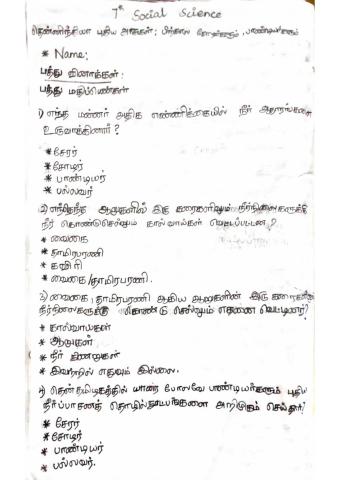 7th Social Science
தென்னிந்தியா புதிய அரசுகள்; பிற்கால சோழர்களும், பாண்டியர்களும்
* Name:
பத்து வினாக்கள்:
பத்து மதிப்பெண்கள்
1) எந்த மன்னர் அதிக எண்ணிக்கையில் நீர் ஆதாரங்களை
உருவாக்கினார்?
* சேரர்
* சோழர்
* பாண்டியர்
* பல்லவர்
2) எந்தெந்த ஆறுகளில் இரு கரைகளிலும் நீர்நிலைகளுக்கு
நீர் கொண்டுசெல்லும் கால்வாய்கள் வெட்டப்பட்டன?
* வைகை
* தாமிரபரணி
* காவிரி
* வைகை/தாமிரபரணி.
3) வைகை, தாமிரபரணி ஆகிய ஆறுகளின் இரு கரைகளிலும்
நீர்நிலைகளுக்கு கொண்டு செல்லும் எதனை வெட்டினர்?
* கால்வாய்கள்
* ஆறுகள்
* நீர் கிணறுகள்
* இவற்றில் எதுவும் இல்லை.
4) தென்தமிழகத்தில் யாரை போலவே பாண்டியர்களும் புதிய
நீர்ப்பாசனத் தொழில்நுட்பங்களை அறிமுகம் செய்தனர்?
* சேரர்
* சோழர்
* பாண்டியர்
* பல்லவர்.